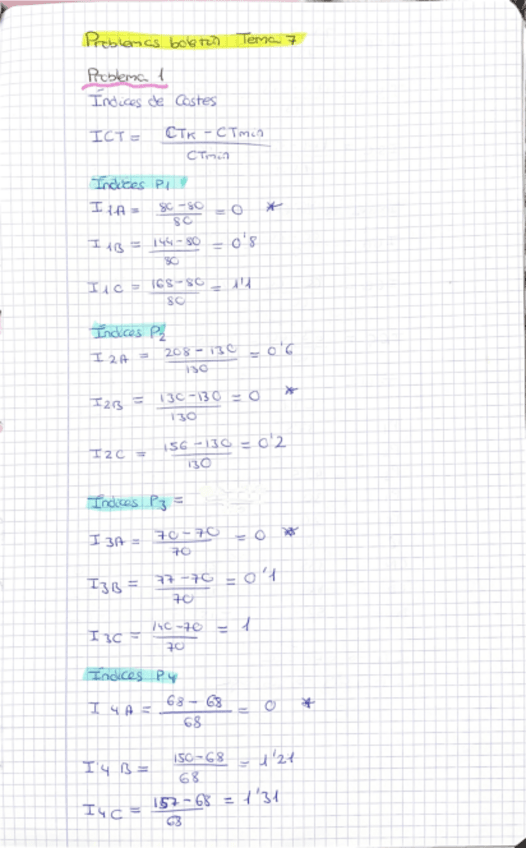 Problemas boletín Tema 7
Problema 1
Índices de Costes
ICT = CTk - CTmin / CTmin
Índices P1
I1A = 80-80 / 80 = 0 *
I1B = 144-80 / 80 = 0'8
I1C = 168-80 / 80 = 1'1
Índices P2
I2A = 208-130 / 130 = 0'6
I2B = 130-130 / 130 = 0 *
I2C = 156-130 / 130 = 0'2
Índices P3 =
I3A = 70-70 / 70 = 0 *
I3B = 77-70 / 70 = 0'1
I3C = 140-70 / 70 = 1
Índices P4
I4A = 68-68 / 68 = 0 *
I4B = 150-68 / 68 = 1'21
I4C = 157-68 / 68 = 1'31